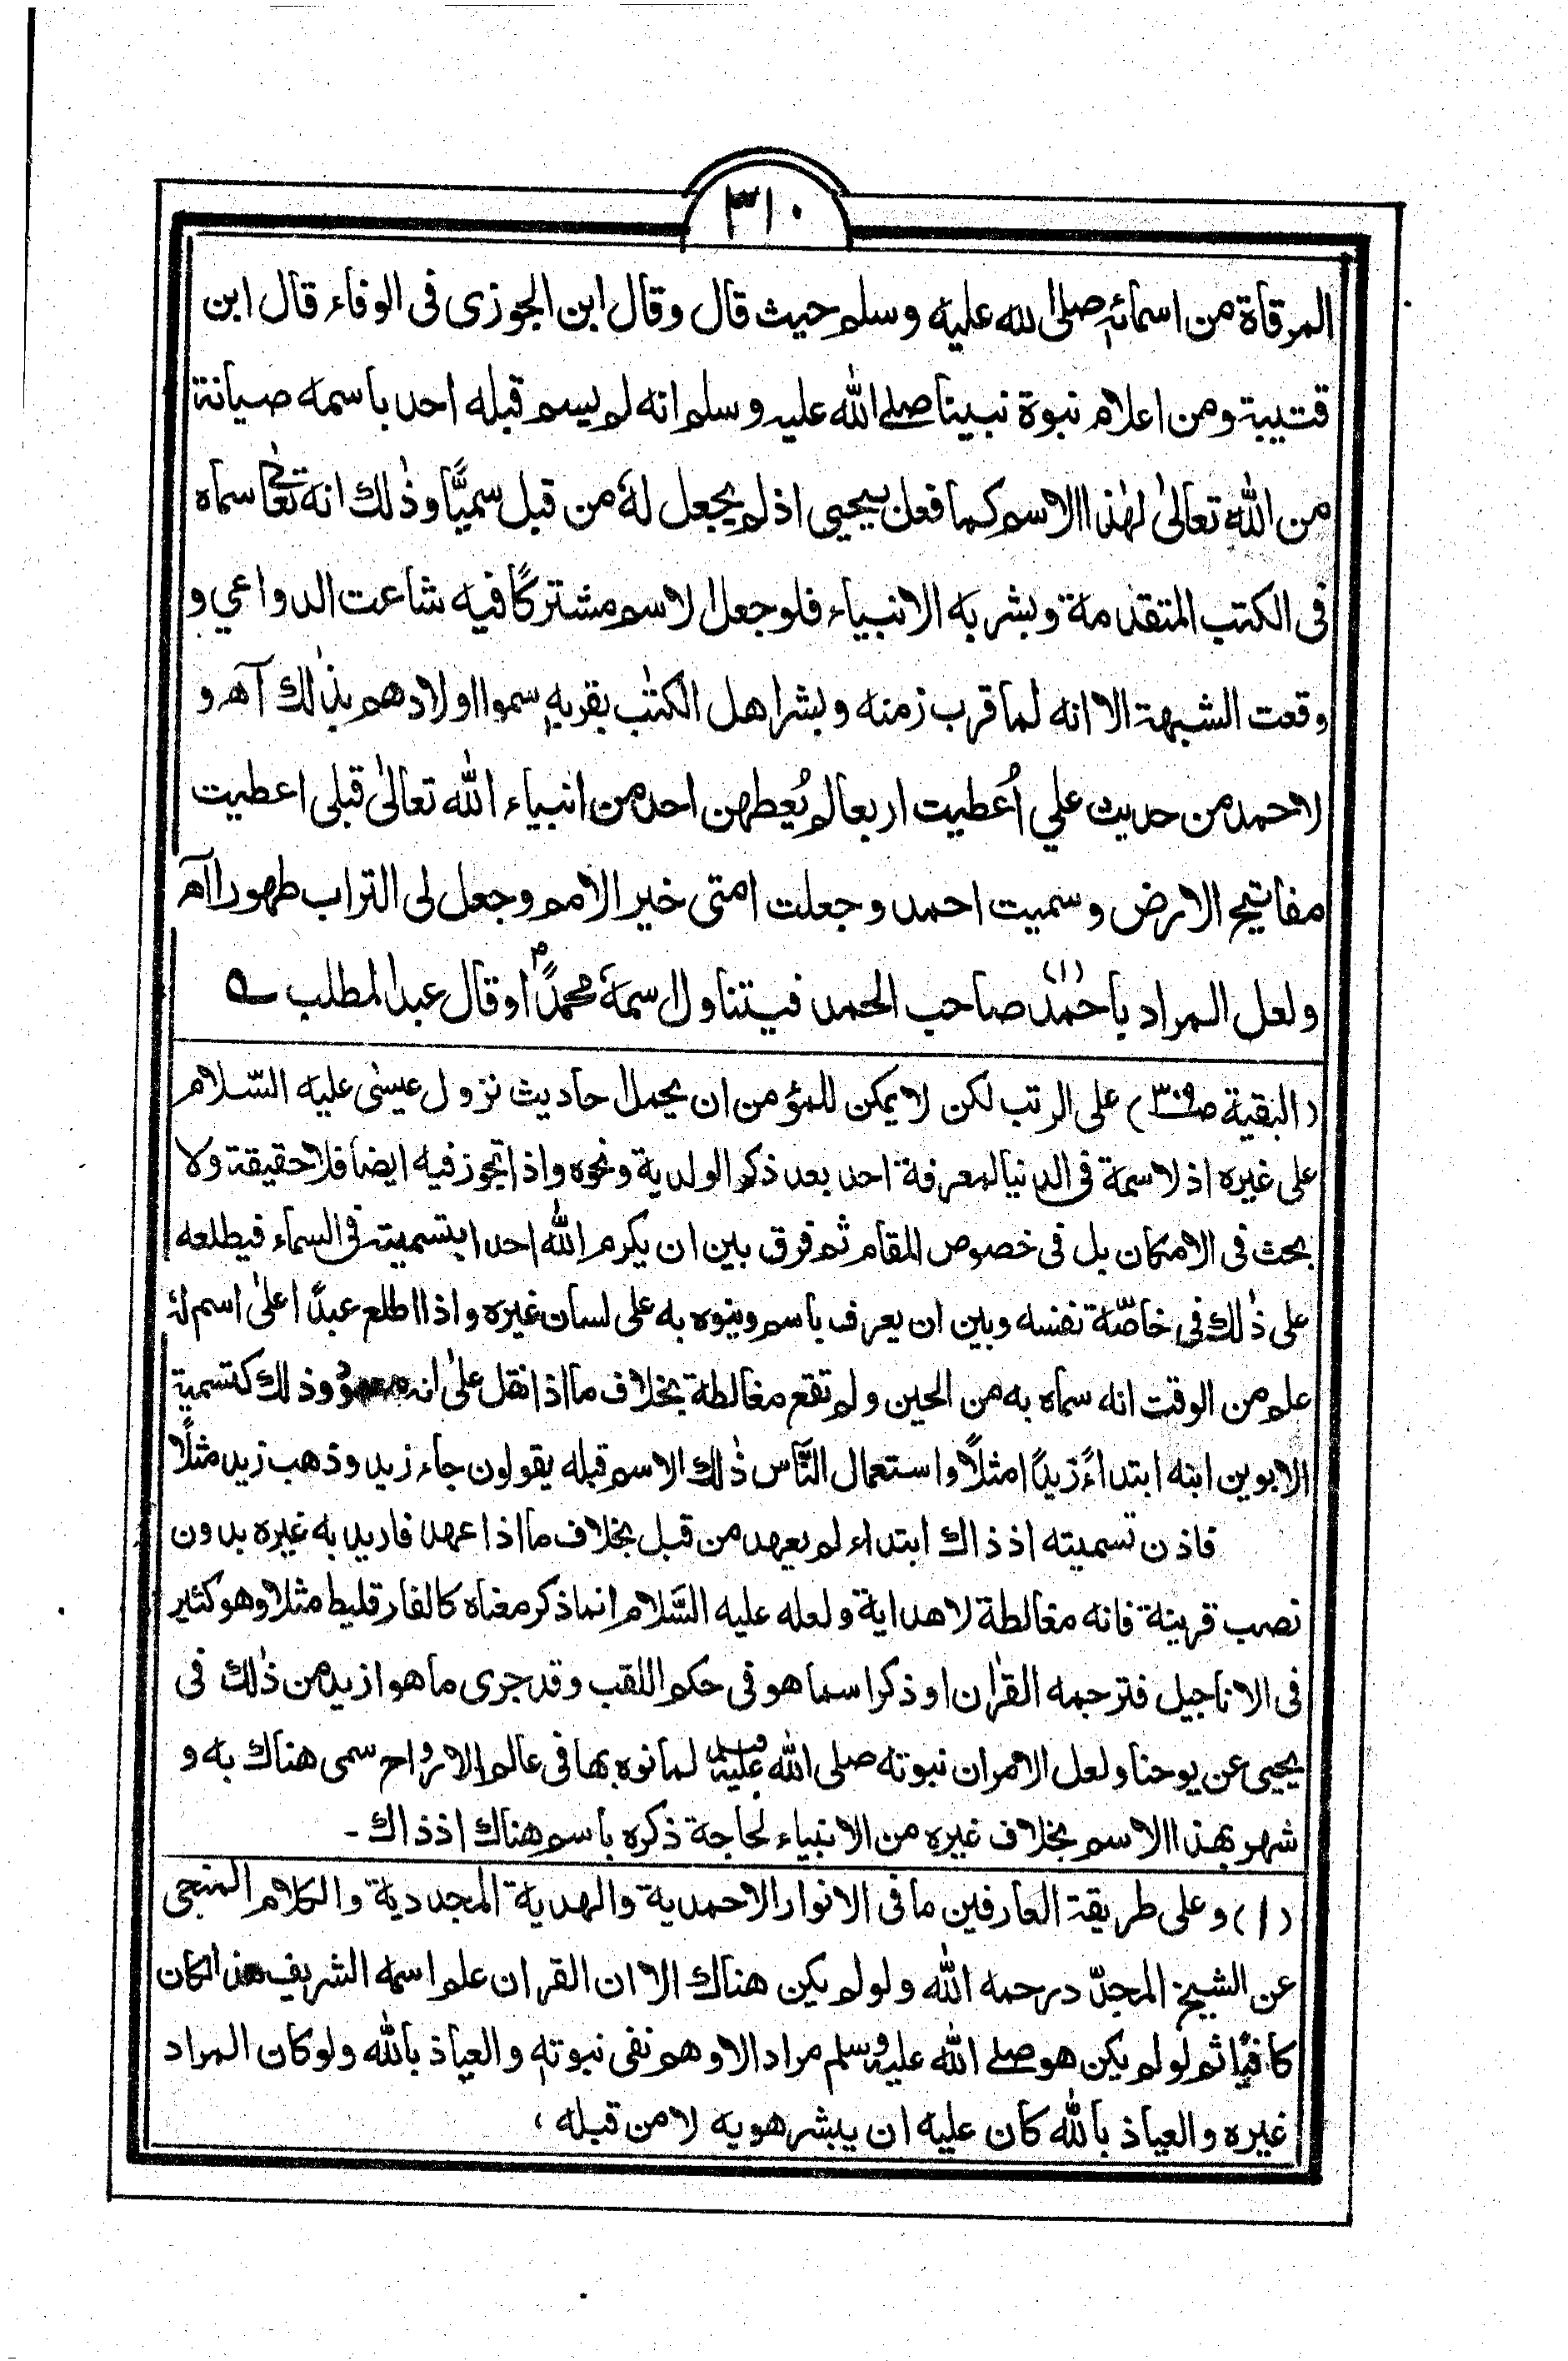 ٣١٠
المرقاة من اسمائہٖ صلى الله عليه وسلم حيث قال وقال ابن الجوزى فى الوفاء قال ابن
قتيبة ومن اعلام نبوة نبينا صلے الله عليه وسلم انه لم يسم قبله احد باسمه صيانة
من اللهِ تعالىٰ لهٰذا الاسم كما فعل بيحيى اذ لم يجعل لهٗ من قبل سميًّا وذٰلك انه تعالىٰ سماه
فى الكتب المتقدمة وبشر به الانبياء فلو جعل الاسم مشتركًا فيه شاعت الدواعي و
وقعت الشبهة الا انه لما قرب زمنه وبشر اهل الكتٰب بقربهٖ سموا اولادهم بذٰلك آھ و
لاحمد من حديث علي اُعطيت اربعا لم يُعطهن احد من انبياء الله تعالىٰ قبلى اعطيت
مفاتيح الارض وسميت احمد وجعلت امتى خير الامم وجعل لى التراب طهورا آھ
ولعل المراد باحمد (١) صاحب الحمد فيتناول اسمهٗ محمدًا ؐ اوقال عبد المطلب ے
(البقية صـ ٣٠٩) على الرتب لكن لا يمكن للمؤمن ان يحمل احاديث نزول عيسٰى عليه السّلام
على غيره اذ لا سمة فى الدنيا لمعرفة احد بعد ذكر الولدية ونحوه واذا تجوز فيه ايضا فلا حقيقة ولا
بحث فى الامكان بل فى خصوص المقام ثم فرق بين ان يكرم الله احدا بتسميته فى السماء فيطلعه
على ذٰلك فى خاصّة نفسه وبين ان يعرف باسم وينوه به على لسان غيره واذا اطلع عبدًا علىٰ اسم لهٗ
علم من الوقت انه سماه به من الحين ولم تقع مغالطة بخلاف ما اذا نقل علىٰ انه وذلك كتسمية
الابوين ابنه ابتداءً زيدًا مثلًا واستعمال النَّاس ذٰلك الاسم قبله يقولون جاء زيد وذهب زيد مثلًا
فاذن تسميته اذ ذاك ابتداء لم يعهد من قبل بخلاف ما اذا عهد فاريد به غيره بدون
نصب قرينة فانه مغالطة لا هداية ولعله عليه السَّلام انما ذكر معناه كالفارقليط مثلا وهو كثير
فى الاناجيل فترجمه القراٰن او ذكر اسما هو فى حكم اللقب وقد جرى ما هو ازيد من ذٰلك فى
يحيى عن يوحنا ولعل الامر ان نبوته صلى الله عليه وسلم لما نوه بها فى عالم الارواح سمى هناك به و
شهر بهذا الاسم بخلاف غيره من الانبياء لحاجة ذكره باسم هناك اذ ذاك ـ
(١) وعلى طريقة العارفين ما فى الانوار الاحمدية والهدية المجددية والكلام المنجى
عن الشيخ المجدّد رحمه الله ولو لم يكن هناك الا ان القران علم اسمه الشريف هذا لكان
كافيًا ثم لو لم يكن هو صلے الله عليه وسلم مرادا لاوهم نفى نبوتهٖ والعياذ بالله ولو كان المراد
غيره والعياذ بالله كان عليه ان يبشر هو به لا من قبله ،